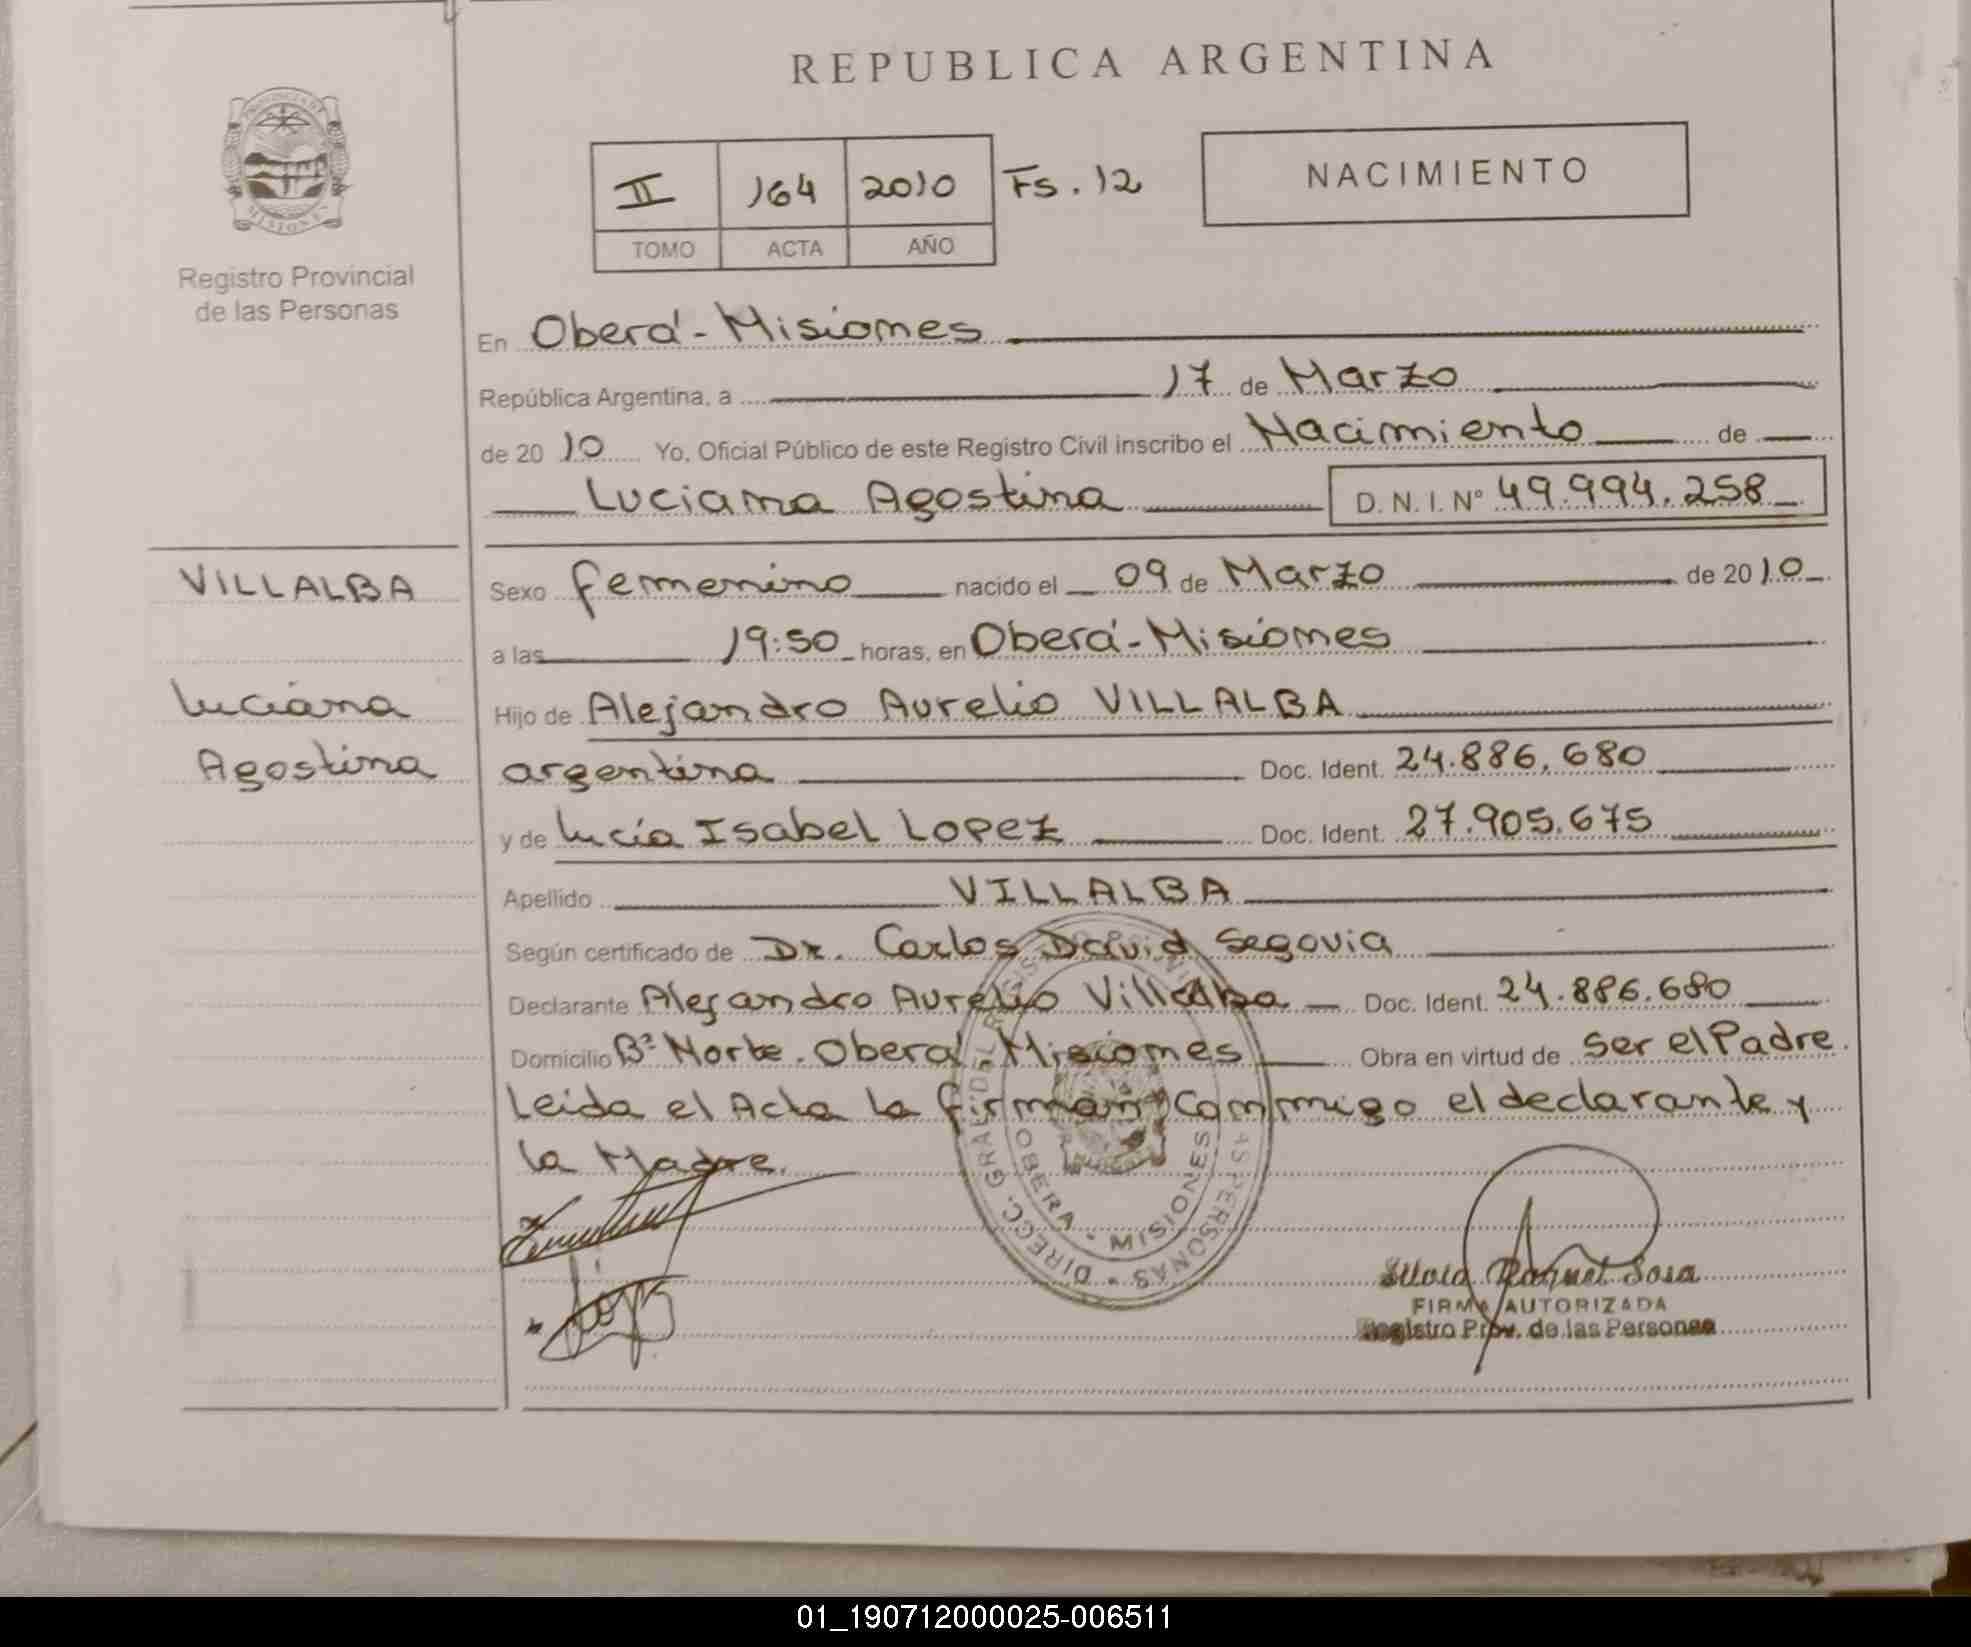 REPUBLICA ARGENTINA
II 164 2010 Fs. 12
TOMO ACTA AÑO
NACIMIENTO
PROVINCIA DE
MISIONES
Registro Provincial
de las Personas
En Oberá - Misiones
República Argentina, a 17 de Marzo
de 20 10 Yo, Oficial Público de este Registro Civil inscribo el Nacimiento de
Luciana Agostina D.N.I. Nº 49.994.258
VILLALBA
Luciana
Agostina
Sexo femenino nacido el 09 de Marzo de 20 10
a las 19:50 horas, en Oberá - Misiones
Hijo de Alejandro Aurelio VILLALBA
argentina Doc. Ident. 24.886.680
y de Lucía Isabel Lopez Doc. Ident. 27.905.675
Apellido VILLALBA
Según certificado de Dr. Carlos David Segovia
Declarante Alejandro Aurelio Villalba Doc. Ident. 24.886.680
Domicilio Bº Norte. Oberá - Misiones Obra en virtud de ser el Padre.
Leida el Acta la firman conmigo el declarante y
la Madre.
DIRECC. GRAL. DEL REGISTRO PROVINCIAL DE LAS PERSONAS
OBERA - MISIONES
Silvia Raquel Sosa
FIRMA AUTORIZADA
Registro Prov. de las Personas
01_190712000025-006511